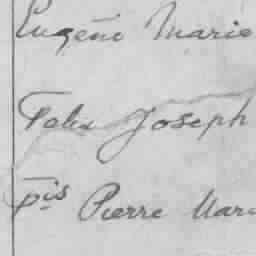 Eugène Marie
Felix Joseph
pis Pierre Mari